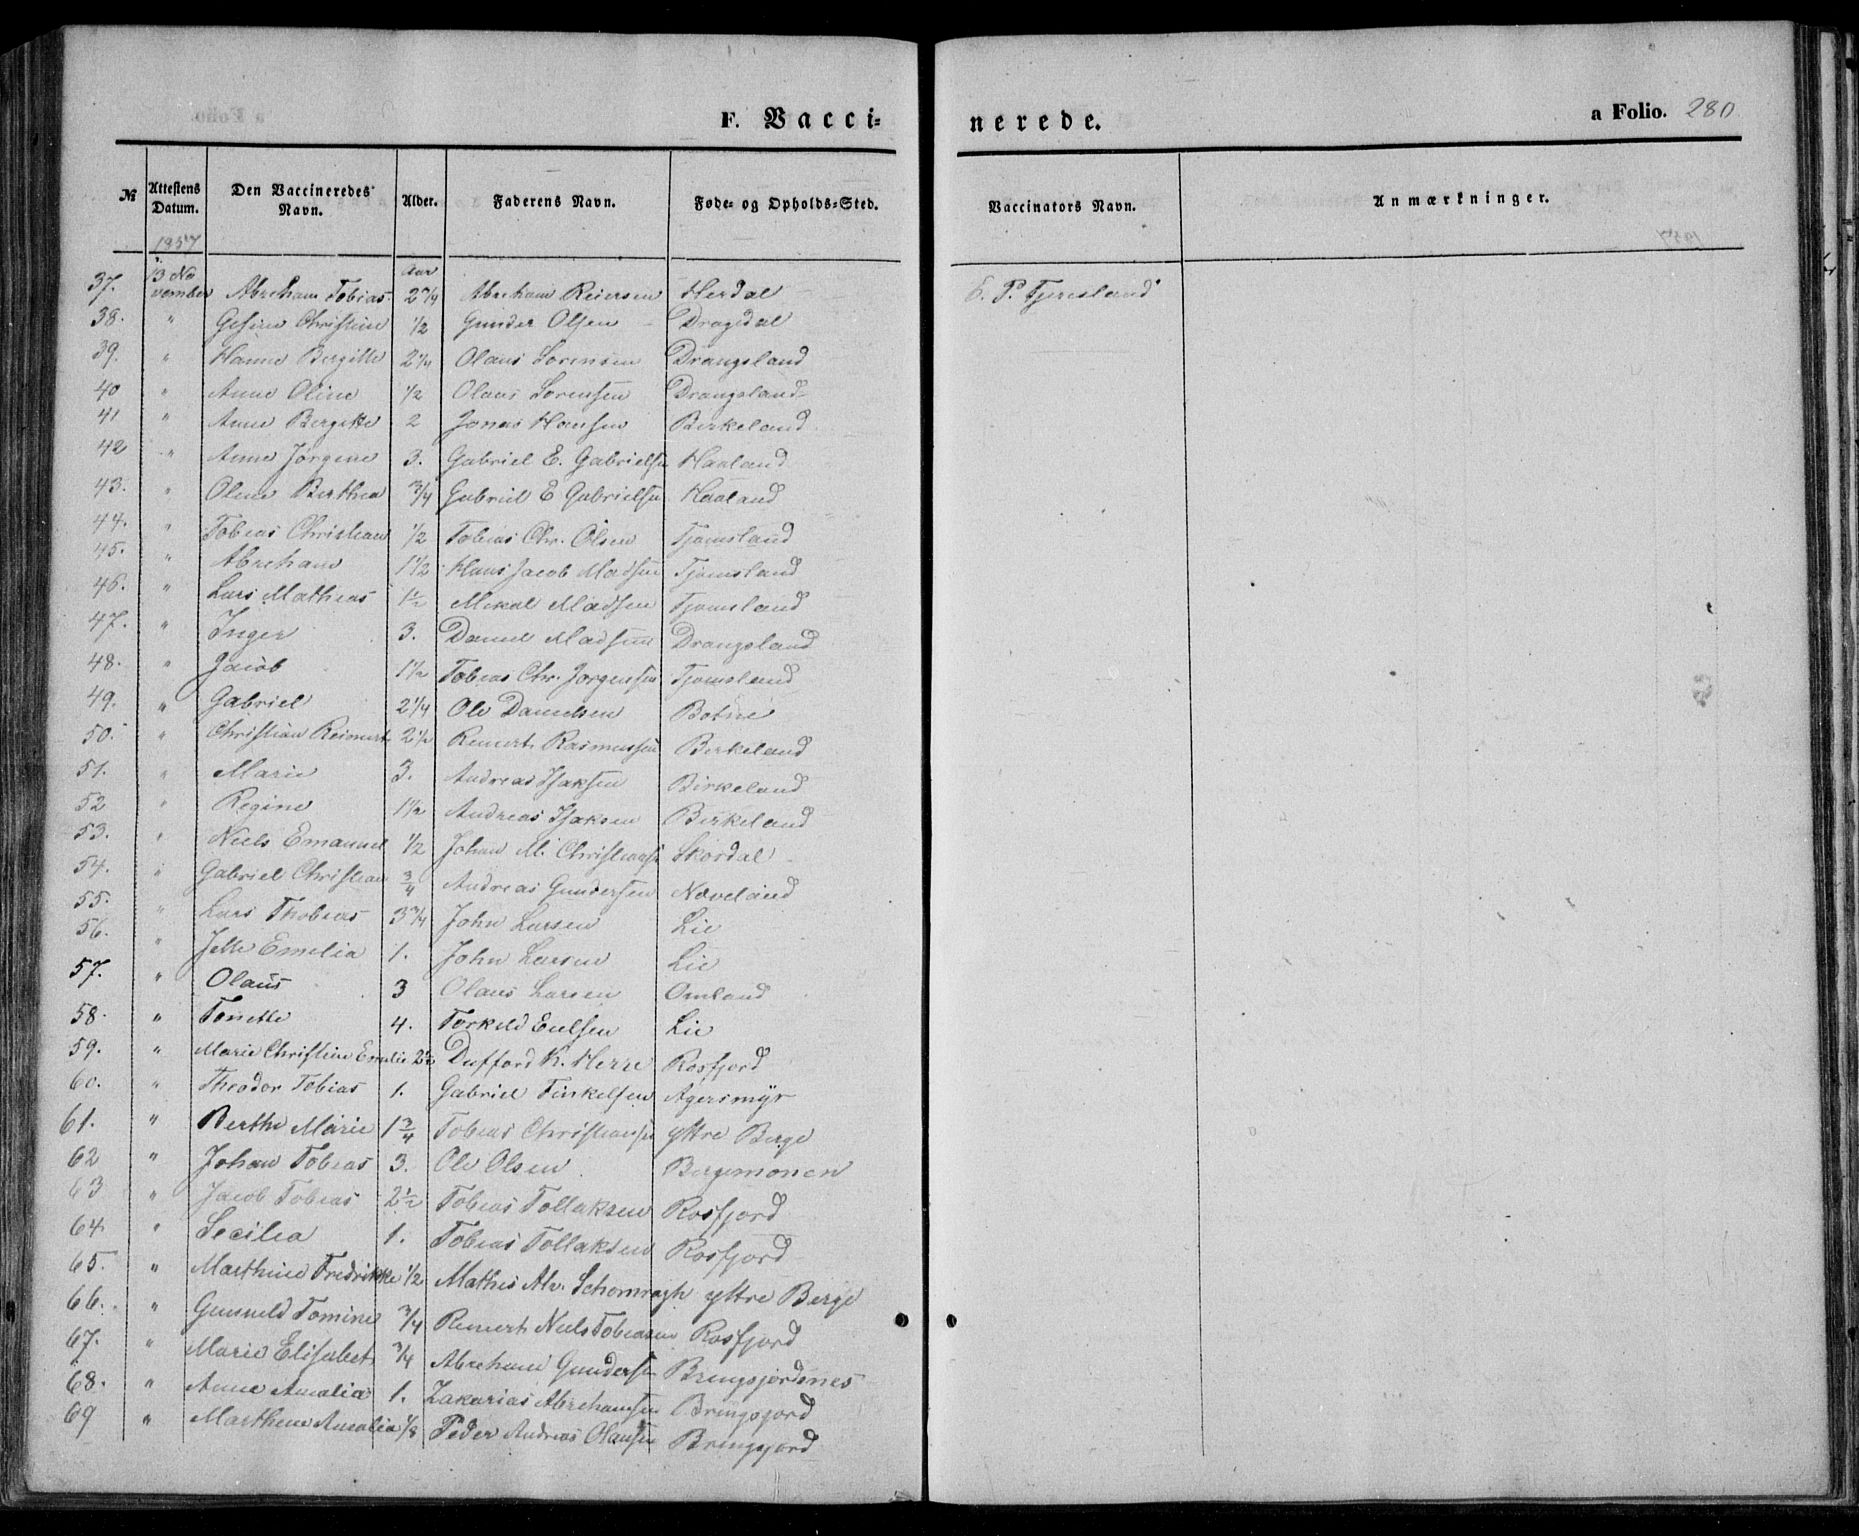 F. Vacci-
nerede.
a Folio. 280
№ Attestens Datum. Den Vaccineredes Navn. Alder. Faderens Navn. Føde- og Opholds-Sted. Vaccinators Navn. Anmærkninger.
1857
Aar
37. 13 November Abreham Tobias Abreham Reiersen Herdal
38. " Gesine Christine 1/2 Gunder Olsen Dragedal
39. " Hanne Bergitte 2 1/4 Olaus Sorensen Drangsland
40 " Anne Oline 1/2 Olaus Sorensen Drangsland
41 " Anne Bergitte 2 Jonas Hansen Birkeland
42 " Anne Jørgene 3. Gabriel E. Gabrielsen Haaland
43. " Olene Berthea 3/4 Gabriel E Gabrielsen Haaland
44. " Tobias Christian 1/2 Tobias Chr. Olsen Tjomsland
45. " Abreham 1 1/2 Hans Jacob Madsen Tjomsland
46. " Lars Mathias 1 1/2 Mikal Madsen Tjomsland
47. " Inger 3. Daniel Madsen Drangsland
48. " Jacob 1 1/2 Tobias Chr. Jorgensen Tjomsland
49. " Gabriel 2 1/4 Ole Danielsen Botne
50. " Christian Reinert 2 1/2 Reinert Rasmussen Birkeland
51. " Marie 3. Andreas Isaksen Birkeland
52 " Regine 1 1/2 Andreas Isaksen Birkeland
53. " Niels Emanuel 1/2 Johan M. Christiansen Skordal
54. " Gabriel Christian 3/4 Andreas Gundersen Nøveland
55. " Lars Thobias 3 3/4 John Larsen Lie
56. " Jette Emelia 1. John Larsen Lie
57. " Olaus 3 Olaus Larsen Omland
58. " Tonette 4. Torkeld Eielsen Lie
59. " Marie Christine Emelie 2 1/2 K. Herre Rosfjord
60. " Theodor Tobias 1. Gabriel Finkelsen Agersmyr
61. " Berthe Marie 1 3/4 Tobias Christiansen yttre Berge
62 " Johan Tobias 3. Ole Olsen Bergemonen
63 " Jacob Tobias 2 1/2 Tobias Tollaksen Rosfjord
64 " Secilia 1. Tobias Tollaksen Rosfjord
65. " Marthine Fredrikke 1/2 Mathis Alv. yttre Berge
66. " Gunneld Tomine 3/4 Reinert Niels Tobiasen Rosfjord
67. " Marie Elisabet 3/4 Abreham Gundersen Bringsjordenes
68. " Anne Amalia 1. Zakarias Abrehamsen Bringsjord
69 " Marthine Amalia 1/8 Peder Andreas Olausen Bringsjord